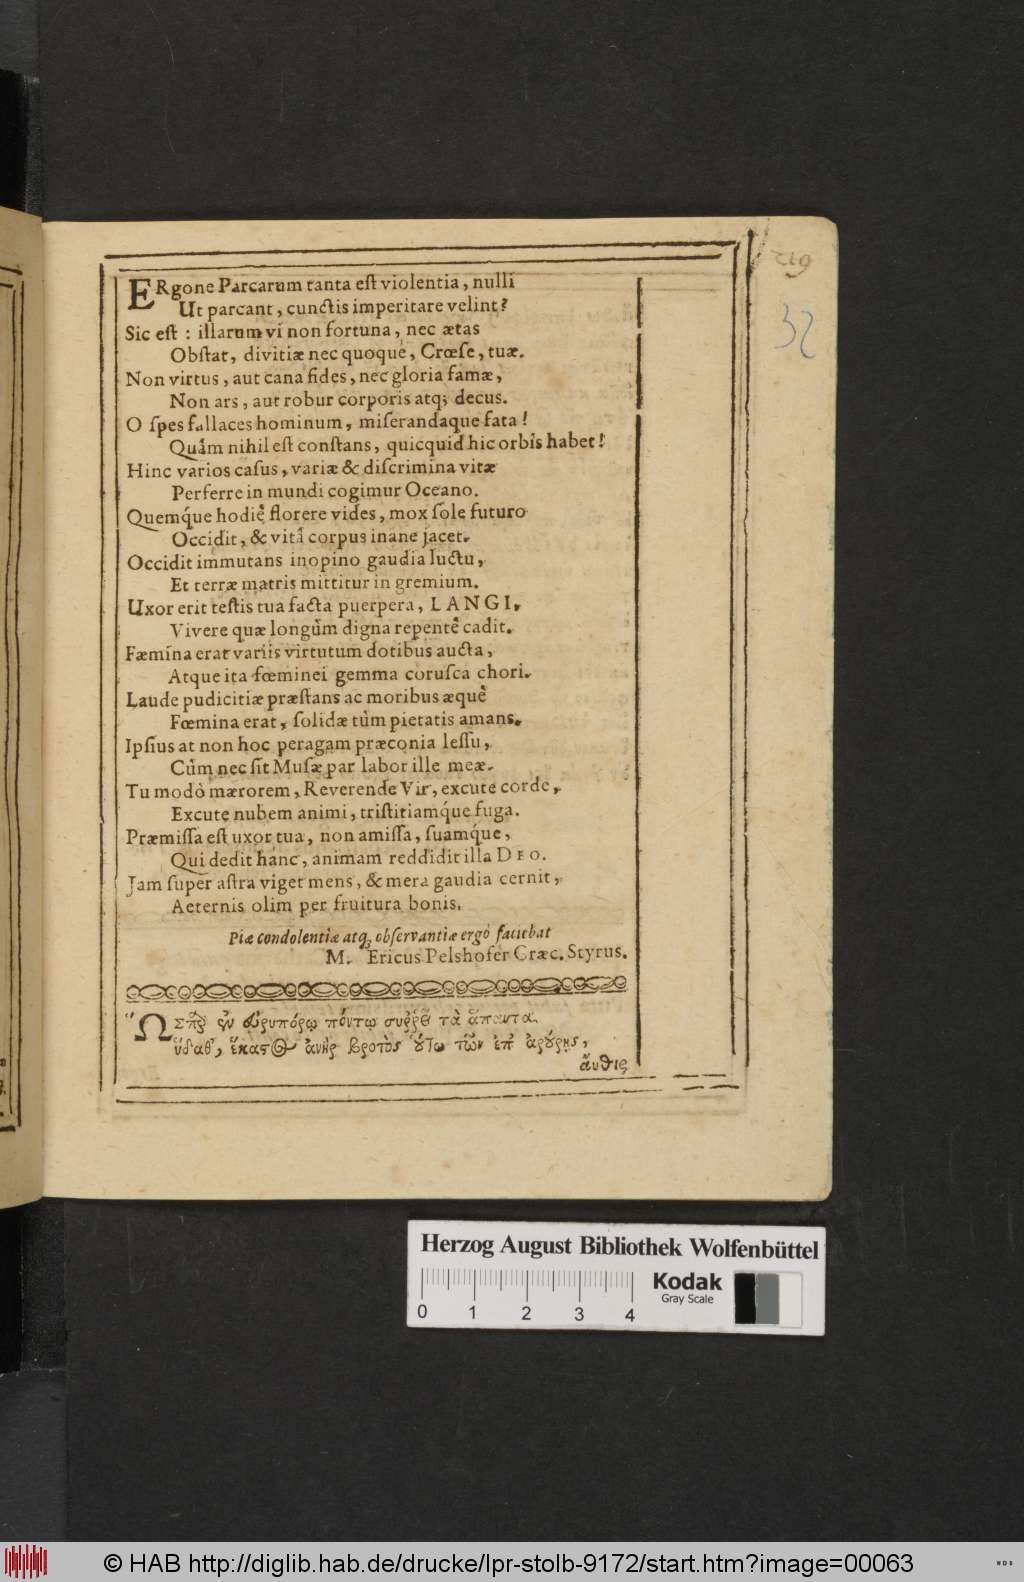 219
32
ERgone Parcarum tanta est violentia, nulli
Ut parcant, cunctis imperitare velint?
Sic est: illarum vi non fortuna, nec ætas
Obstat, divitiæ nec quoque, Crœse, tuæ.
Non virtus, aut cana fides, nec gloria famæ,
Non ars, aut robur corporis atq; decus.
O spes fallaces hominum, miserandaque fata!
Quàm nihil est constans, quicquid hic orbis habet!
Hinc varios casus, variæ & discrimina vitæ
Perferre in mundi cogimur Oceano.
Quemq́ue hodiè florere vides, mox sole futuro
Occidit, & vitâ corpus inane jacet.
Occidit immutans inopino gaudia luctu,
Et terræ matris mittitur in gremium.
Uxor erit testis tua facta puerpera, LANGI,
Vivere quæ longùm digna repentè cadit.
Fæmina erat variis virtutum dotibus aucta,
Atque ita fœminei gemma corusca chori.
Laude pudicitiæ præstans ac moribus æquè
Fœmina erat, solidæ tùm pietatis amans.
Ipsius at non hoc peragam præconia lessu,
Cùm nec sit Musæ par labor ille meæ.
Tu modò mærorem, Reverende Vir, excute corde,
Excute nubem animi, tristitiamq́ue fuga.
Præmissa est uxor tua, non amissa, suamq́ue,
Qui dedit hanc, animam reddidit illa DEO.
Jam super astra viget mens, & mera gaudia cernit,
Aeternis olim per fruitura bonis.
Piæ condolentiæ atq; observantiæ ergò faciebat
M. Ericus Pelshofer Græc. Styrus.
πόντῳ τὰ ἅπαντα
ὕδαθ', ἕκαστος ἀνὴρ βροτὸς οὕτω τῶν ἐπ' ἀρούρης,
αὖθις
Herzog August Bibliothek Wolfenbüttel
0 1 2 3 4
Kodak
Gray Scale
© HAB http://diglib.hab.de/drucke/lpr-stolb-9172/start.htm?image=00063